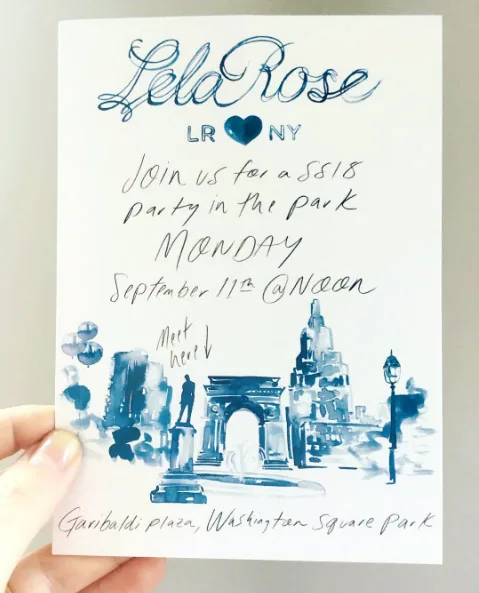 Lela Rose
LR NY
Join us for a SS18
party in the park
MONDAY
September 11th @Noon
Meet
here
Garibaldi plaza, Washington Square Park